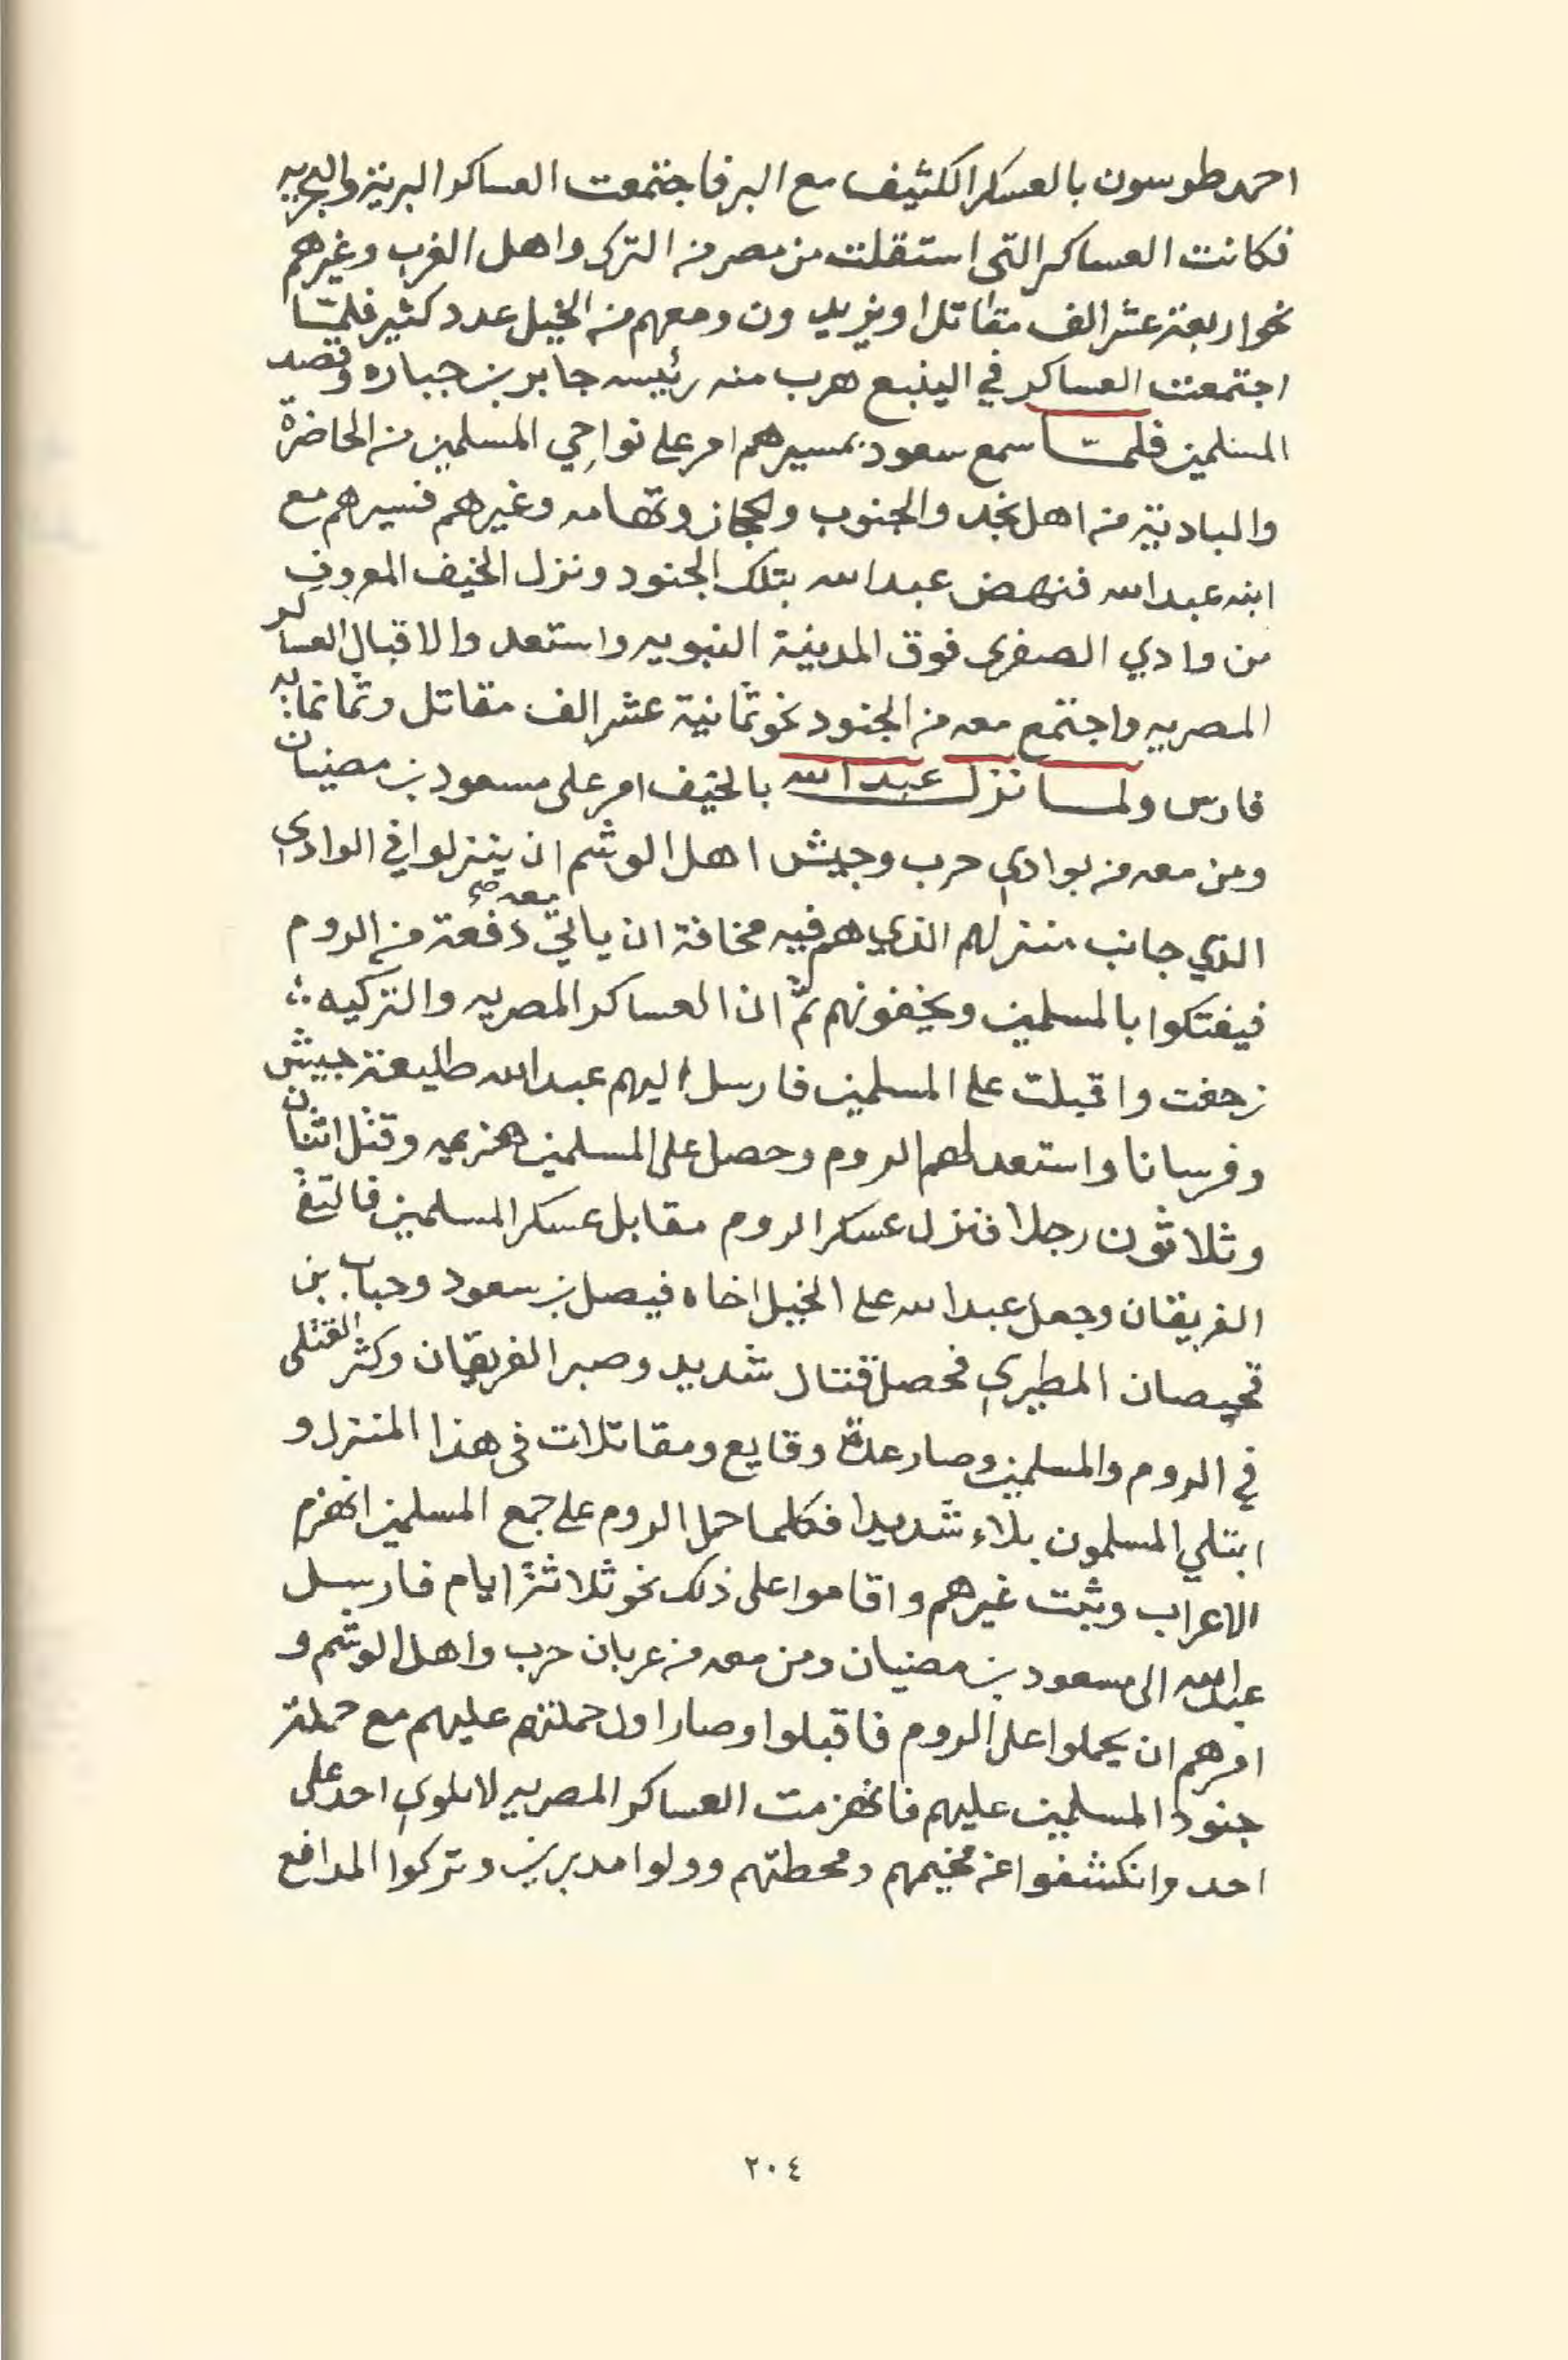 احمد طوسون بالعسكر الكثيف مع البر فاجتمعت العساكر البرية والبحريه
فكانت العساكر التي استقلت من مصر من الترك واهل الغرب وغيرهم
نحو اربعة عشر الف مقاتل او يزيدون ومعهم من الخيل عدد كثير فلمّا
اجتمعت العساكر في الينبع هرب منه رئيسه جابر بن جباره وقصد
المسلمين فلمّا سمع سعود بمسيرهم امر على نواحي المسلمين من الحاضرة
والبادية من اهل نجد والجنوب والحجاز وتهامه وغيرهم فسيرهم مع
ابنه عبدالله فنهض عبدالله بتلك الجنود ونزل الخيف المعروف
من وادي الصفرى فوق المدينة النبويه واستعد والاقبال العساكر
المصريه واجتمع معه من الجنود نحو ثمانية عشر الف مقاتل وثمانمايه
فارس ولما نزل عبدالله بالخيف امر على مسعود بن مضيان
ومن معه من بوادي حرب وجيش اهل الوشم ان ينزلوا في الوادي
الذي جانب منزلهم الذي هم فيه مخافة ان ياتي معه صح دفعة من الروم
فيفتكوا بالمسلمين ويخفونهم ثمّ ان العساكر المصريه والتركيه
زحفت واقبلت على المسلمين فارسل اليهم عبدالله طليعة جيش
وفرسانا واستعد لهم الروم وحصل على المسلمين هزيمه وقتل اثنان
وثلاثون رجلا فنزل عسكر الروم مقابل عسكر المسلمين فالتقى
الفريقان وجعل عبدالله على الخيل اخاه فيصل بن سعود وحباب بن
قحيصان المطيري فحصل قتال شديد وصبر الفريقان وكثر القتلى
في الروم والمسلمين وصار عدة وقايع ومقاتلات في هذا المنزل و
ابتلي المسلمون بلاء شديدا فكلما حمل الروم على جمع المسلمين انهزم
الاعراب وثبت غيرهم واقاموا على ذلك نحو ثلاثة ايام فارسل
عبدالله الى مسعود بن مضيان ومن معه من عربان حرب واهل الوشم و
امرهم ان يحملوا على الروم فاقبلوا وصار اول حملتهم عليهم مع حملة
جنود المسلمين عليهم فانهزمت العساكر المصريه لا يلوي احد على
احد وانكشفوا عن مخيمهم ومحطتهم وولوا مدبرين وتركوا المدافع
٢٠٤